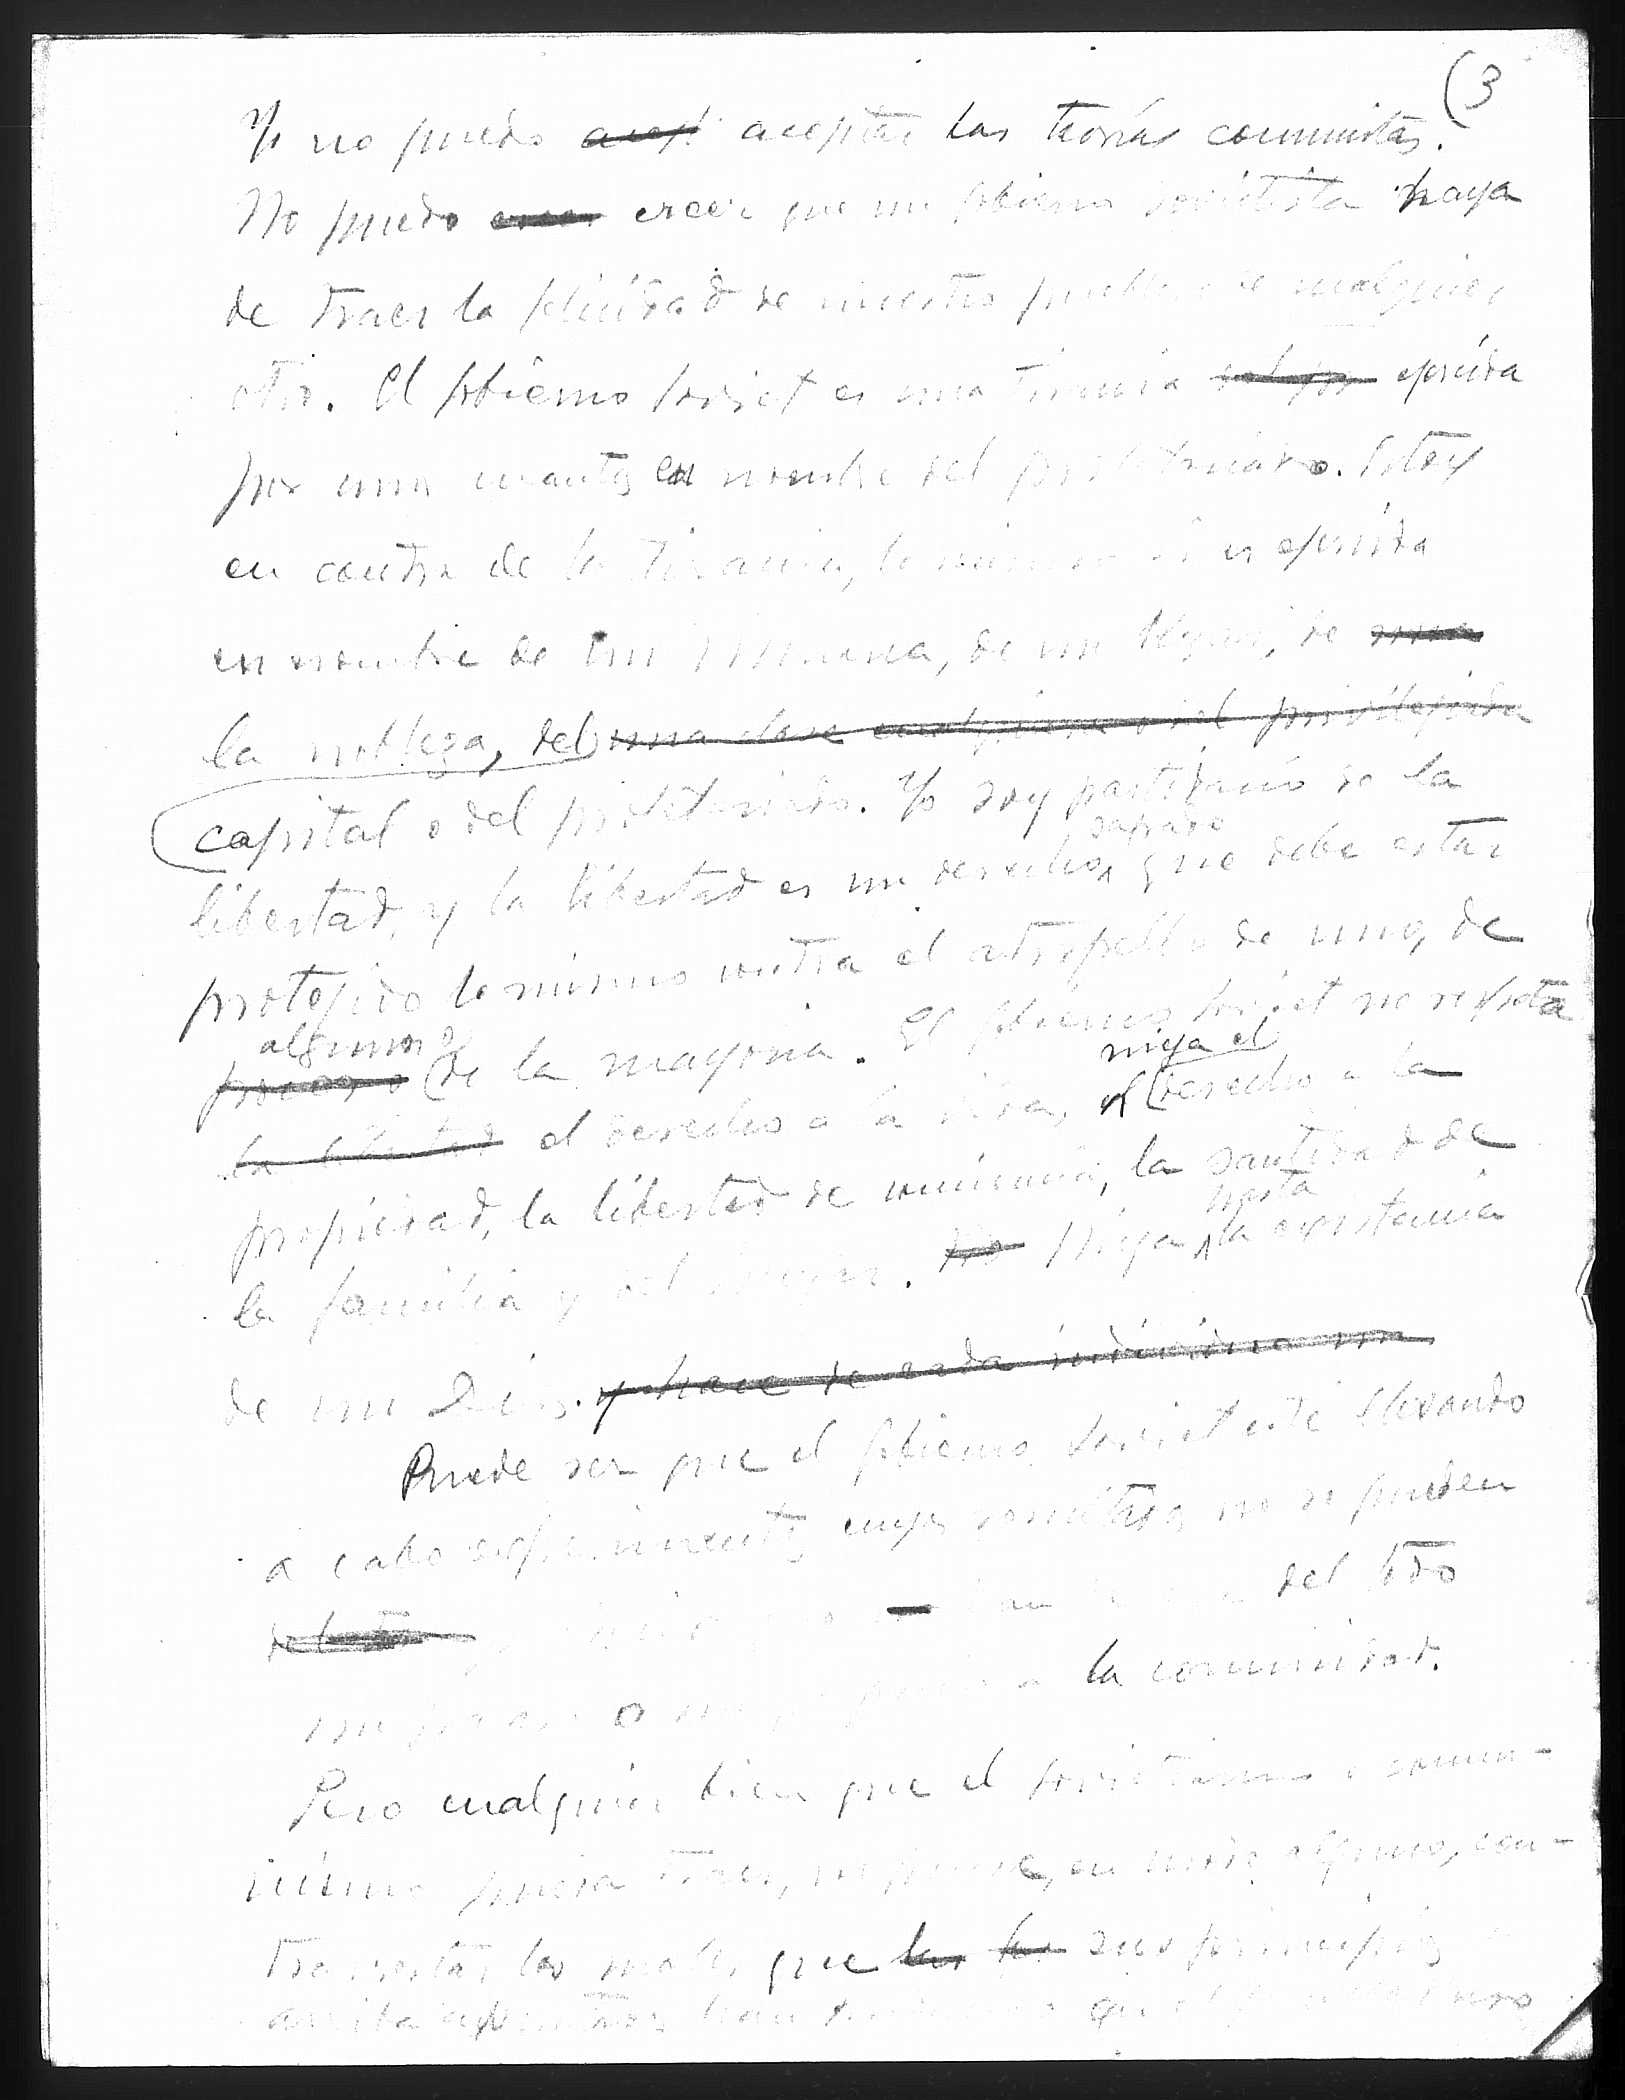 (3
Yo no puedo acept. aceptar las teorías comunistas.
No puedo creer creer que un gobierno sovietista haya
de traer la felicidad de nuestro pueblo o de cualquier
otro. El gobierno soviet es una tiranía ejercida
por unos cuantos en nombre del proletariado. Estoy
en contra de la tiranía, lo mismo si es ejercida
en nombre de un monarca, de un de una
la nobleza, del una clase privilegiada
capital o del proletariado. Yo soy partidario de la
sagrado
libertad, y la libertad es un derecho que debe estar
protegido lo mismo contra el atropello de uno, de
algunos o
de la mayoría. El gobierno soviet no respeta
niega el
la libertad el derecho a la vida, el derecho a la
propiedad, la libertad de conciencia, la santidad de
hasta
la familia y del hogar. No Niega la existencia
de un Dios. y hace de cada individuo un
Puede ser que el gobierno soviet esté llevando
a cabo experimentos cuyos resultados no se pueden
del todo del todo
o a la comunidad.
Pero cualquier bien que el sovietismo o comu-
nismo pueda traer, no puede, en modo alguno, con-
trarrestar los males que las sus principios
arriba han